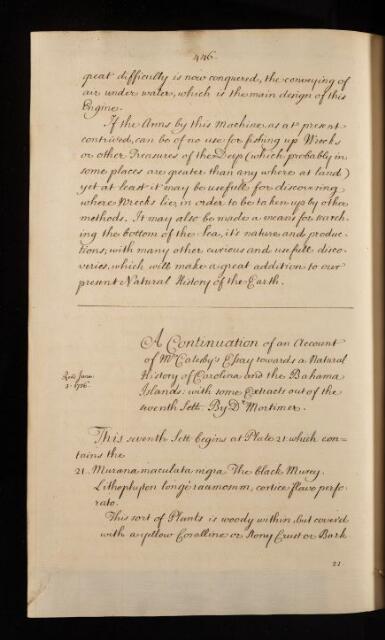 446.
great difficulty is now conquered, the conveying of
air under water, which is the main design of this
Engine.
If the Arms by this Machine, as at present
contrived, can be of no use for fishing up Wrecks
or other Treasures of the Deep (which probably in
some places are greater than any where at land)
yet at least it may be usefull for discovering
where Wrecks lie, in order to be taken up by other
methods. It may also be made a means for search-
ing the bottom of the Sea, it's nature and produc-
tions; with many other curious and usefull disco-
veries, which will make a great addition to our
present Natural History of the Earth.
A Continuation of an Account
of Mr Catesby's Essay towards a Natural
Read
History of Carolina and the Bahama
Islands: with some Extracts out of the
seventh Sett. By Dr Mortimer.
This seventh Sett begins at Plate 21. which con-
tains the
21. Muraena maculata nigra. The black Murey.
Lithophyton longe ramosum, cortice flavo perfo-
rato.
This sort of Plants is woody within, but cover'd
with a yellow Coralline or stony Crust or Bark